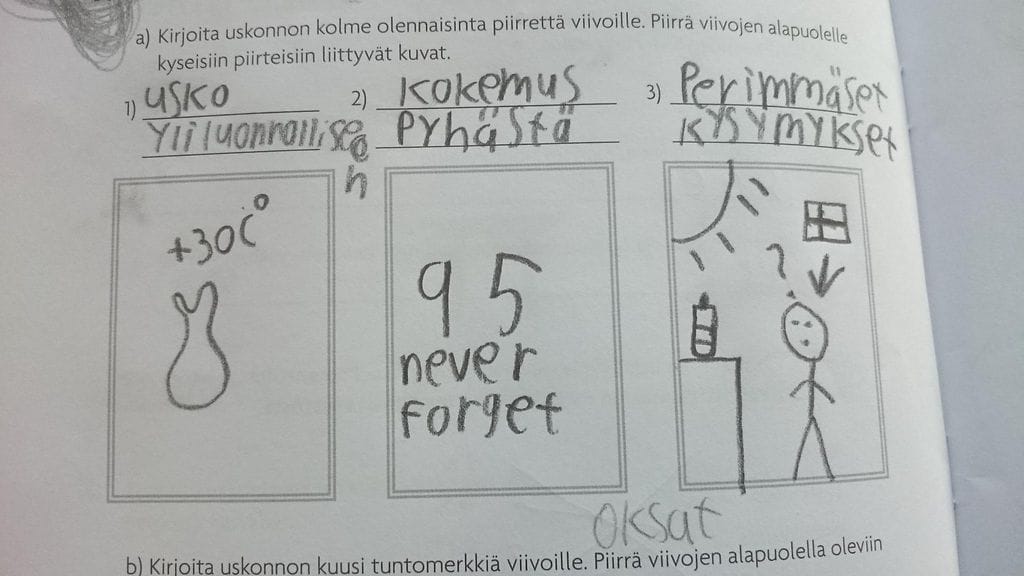 a) Kirjoita uskonnon kolme olennaisinta piirrettä viivoille. Piirrä viivojen alapuolelle
kyseisiin piirteisiin liittyvät kuvat.
1) usko
Yliluonnolliseen
2) Kokemus
Pyhästä
3) Perimmäset
Kysymykset
+30C°
95
never
forget
?
oksat
b) Kirjoita uskonnon kuusi tuntomerkkiä viivoille. Piirrä viivojen alapuolella oleviin